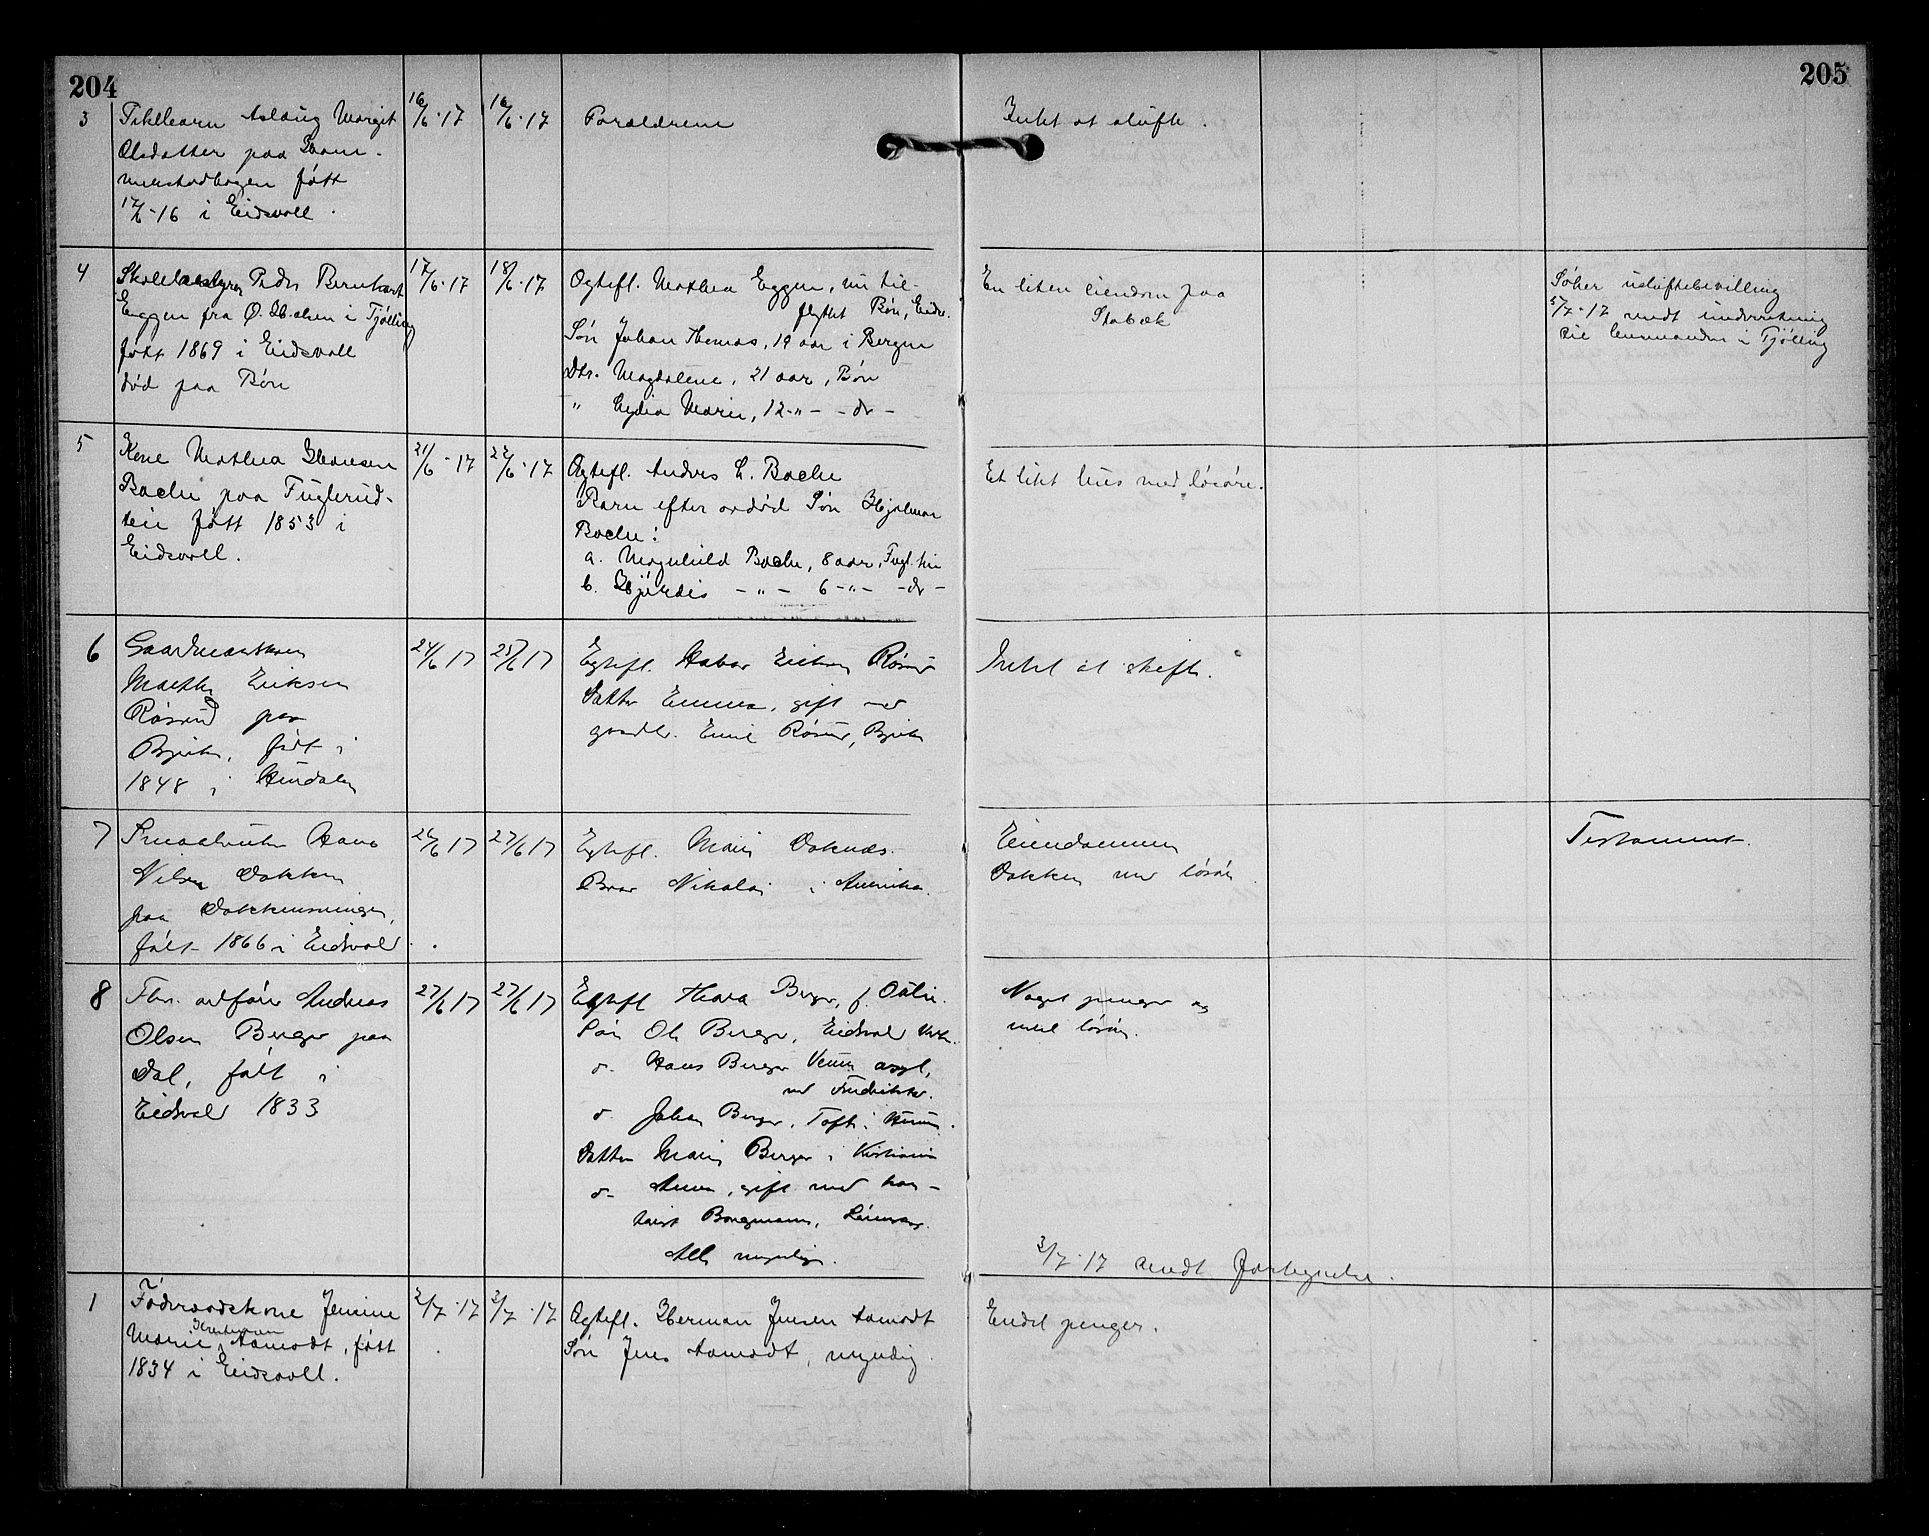 204
205
3
Pikebarn Aslaug Margit
Olsdatter paa
født
17/6-16 i Eidsvoll.
16/6·17
16/6·17
Forældrene
Intet at skifte.
4
Skolebestyrer Peder Bernhart
Eggen fra Ø. Halsen i Tjølling
født 1869 i Eidsvoll
død paa Bøn
17/6·17
18/6·17
Ogtefl. Mathea Eggen, nu til-
flyttet Bøn, Eidsv.
Søn Johan Thomas, 19 aar i Bergen
Dtr. Magdalene, 21 aar, Bøn
" Lydia Marie, 12 -"- - do -
En liten eiendom paa
Stabæk
Søker uskiftebevilling
5/7·17 sendt underretning
til lensmanden i Tjølling
5
Kone Mathea Hansen
Bache paa Fuglerud-
teie født 1853 i
Eidsvoll.
21/6·17
22/6·17
Ogtefl. Anders L. Bache
Barn efter avdød Søn Hjalmar
Bache:
a. Magnhild Bache, 8 aar, Fugl.teie
b. Hjørdis -"- 6 -"- - do -
Et litet hus med løsøre.
6
Gaardmandskone
Marthe Eriksen
Røsrud paa
født i
1848 i Hurdalen
24/6 17
25/6 17
Egtefl. Halvor Eriksen Røsrud
Datter Emma, gift med
gaardbr. Emil Røsrud,
Intet at skifte.
7
Smaabruker Hans
Nilsen Dokken
paa
født 1866 i Eidsvold.
26/6 17
27/6 17
Egtefl. Marie
Bror Nikolai i Amerika.
Eiendommen
Dokken med løsøre.
Testament.
8
Fhv. ordfører Andreas
Olsen Berger paa
Dal, født i
Eidsvold 1833
27/6 17
27/6 17
Egtefl Thora Berger, f.
Søn Ole Berger, Eidsvold Verk.
d. Hans Berger
ved Fredrikst.
d. Johan Berger, Tofte i Hurum.
Datter Marie Berger i Kristiania
d. Anna, gift med
Borgmann,
Alle myndige.
Noget penger og
med løsøre.
3/7·17 sendt fortegnelse.
1
Føderaadskone Jensine
Marie Kristiansen Aamodt, født
1834 i Eidsvoll.
2/7·17
3/7·17
Ogtefl. Herman Jensen Aamodt
Søn Jens Aamodt, myndig.
Endel penger.